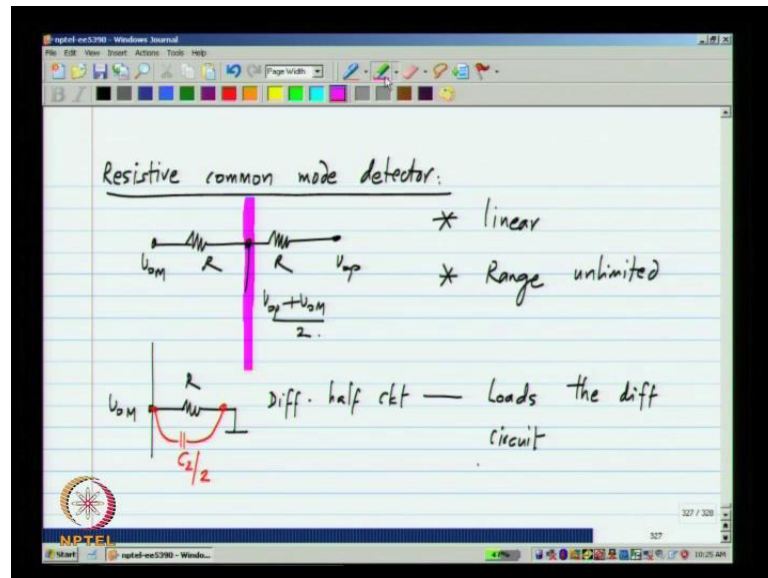 nptel-ee5390 - Windows Journal
File Edit View Insert Actions Tools Help
Page Width
B I
Resistive common mode detector:
* linear
VoM R R Vop
* Range unlimited
Vop + VoM
2
R
VoM Diff. half ckt — Loads the diff
circuit
C2/2
NPTEL
327 / 328
327
Start nptel-ee5390 - Windo... 47% 10:25 AM